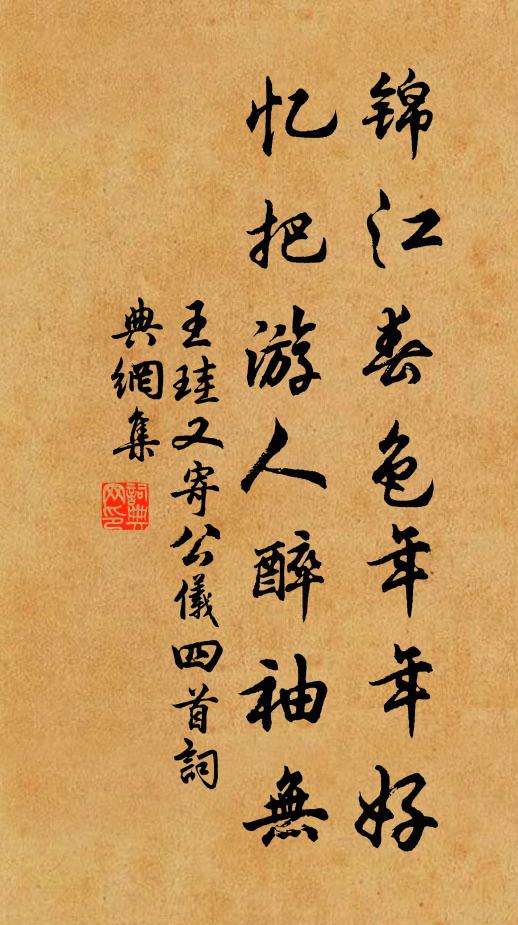 锦江春色年年好
忆把游人醉袖無
王珪又寄公儀四首詞
典網集
詞典
网印